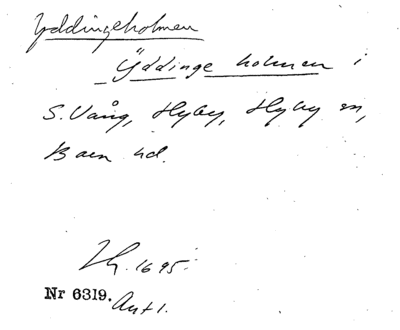 Yddingeholmen
Yddinge holmen i
S. Vång, Hyby, Hyby sn,
Bara hd.
1695.
Nr 6319. Avt 1.